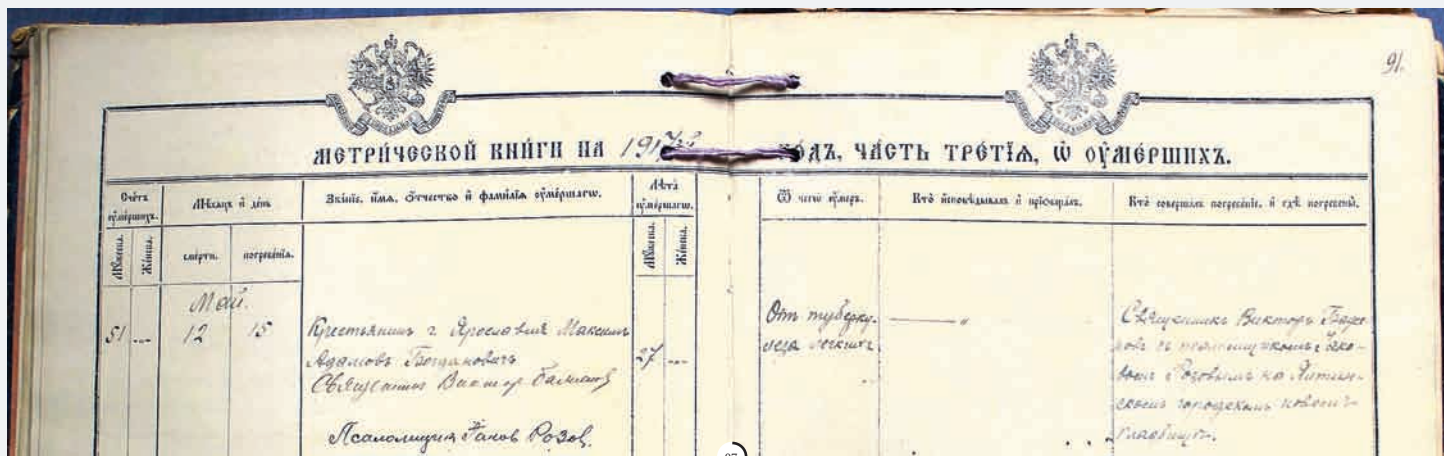 91.
МЕТРИ́ЧЕСКОЙ КНИ́ГИ НА 1917й ГОДЪ, ЧА́СТЬ ТРЕ́ТІѦ, Ѿ ОУ҆МЕ́РШИХЪ.
Сче́тъ оу҆ме́ршихъ.
Мꙋ́жеска.
Же́нска.
Мѣ́сѧцъ и҆ де́нь
сме́рти.
погребе́нїѧ.
Зва́нїе, и҆́мѧ, ѻ҆́тчество и҆ фами́лїѧ оу҆ме́ршагѡ.
Лѣ́та оу҆ме́ршагѡ.
Мꙋ́жеска.
Же́нска.
Ѿ чегѡ̀ оу҆́меръ.
Кто̀ и҆сповѣ́дывалъ и҆ прїѡбща́лъ.
Кто̀ соверша́лъ погребе́нїе, и҆ гдѣ̀ погребены̀.
Май.
51 12 15
Крестьянинъ г. Ярославля Максимъ
Адамовъ Богдановичъ
27
Священникъ Виктор
Псаломщик Іаков Розов.
От туберку-
леза легкихъ
Священникъ Викторъ
съ псаломщикомъ Іако-
вомъ Розовымъ на Ялтин-
скомъ городскомъ новомъ
кладбищѣ.
97